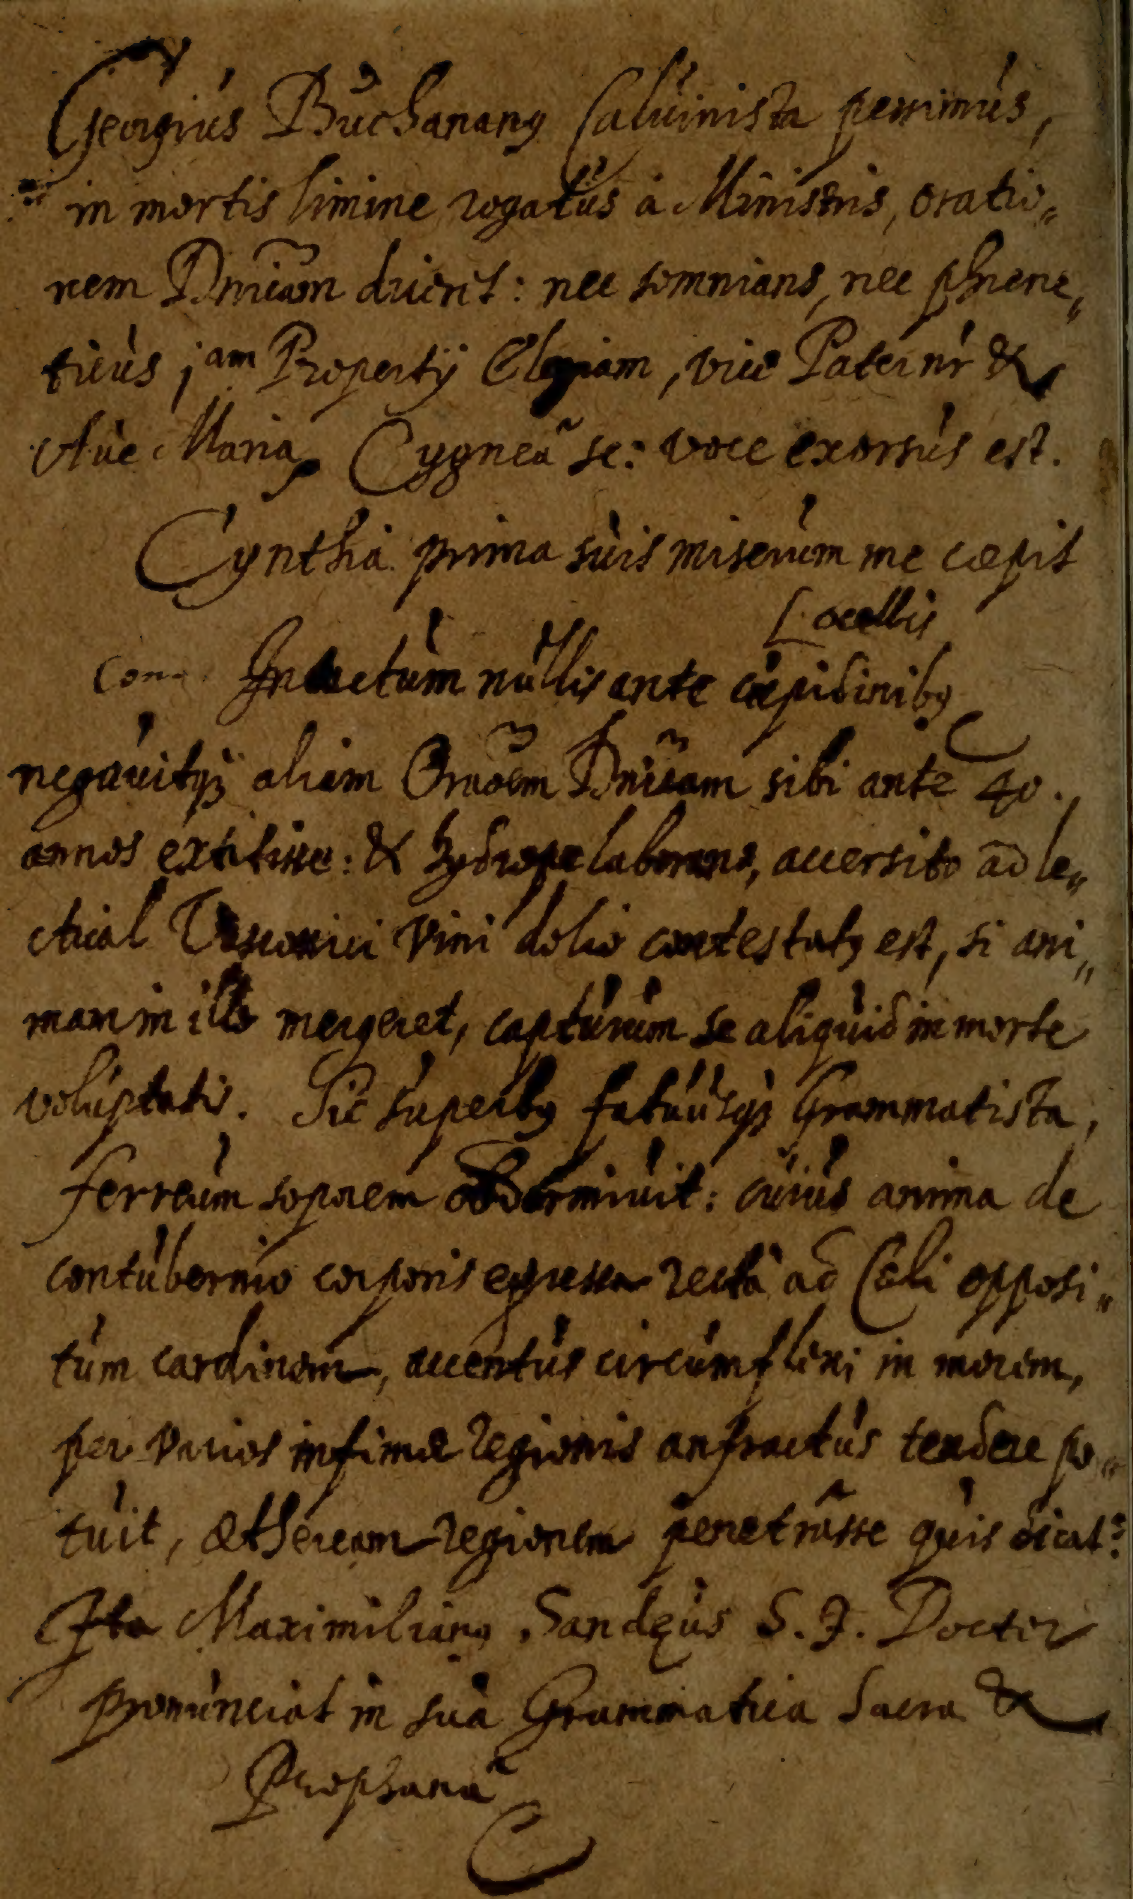 Georgius Buchananꝰ Calvinista pessimus,
in mortis limine rogatus à Ministris, oratio„
nem Dnicam diceret: nec somnians, nec phrene„
ticus jam Propertij Elegiam, vice Paternr &
Aue Maria, Cygneâ sc: voce exorsus est.
Cynthia prima suis miserum me cœpit
[ocellis
Con Intactum nullis ante cupidinibꝰ
negauitqꝫ aliam Oraoem Dnicam sibi ante 40.
annos extitisse: & hydrope laborans, accersito ad le„
ctical Vasconici vini dolio contestatꝰ est, si ani„
mam in illo mergeret, capturum se aliquid in morte
voluptatis. Sic superbꝰ fatuusqꝫ Grammatista,
ferreum soporem obdormiuit: cuius anima de
contubernio corporis egressa rectà ad Cœli opposi„
tum cardinem, accentus circumflexi in morem,
per varios infimæ regionis anfractus tendere po„
tuit, ætheream regionem penetrâsse quis dicat?
Ita Maximilianꝰ Sandęus S. J. Doctor
pronunciat in sua Grammatica Sacra &
Prophana